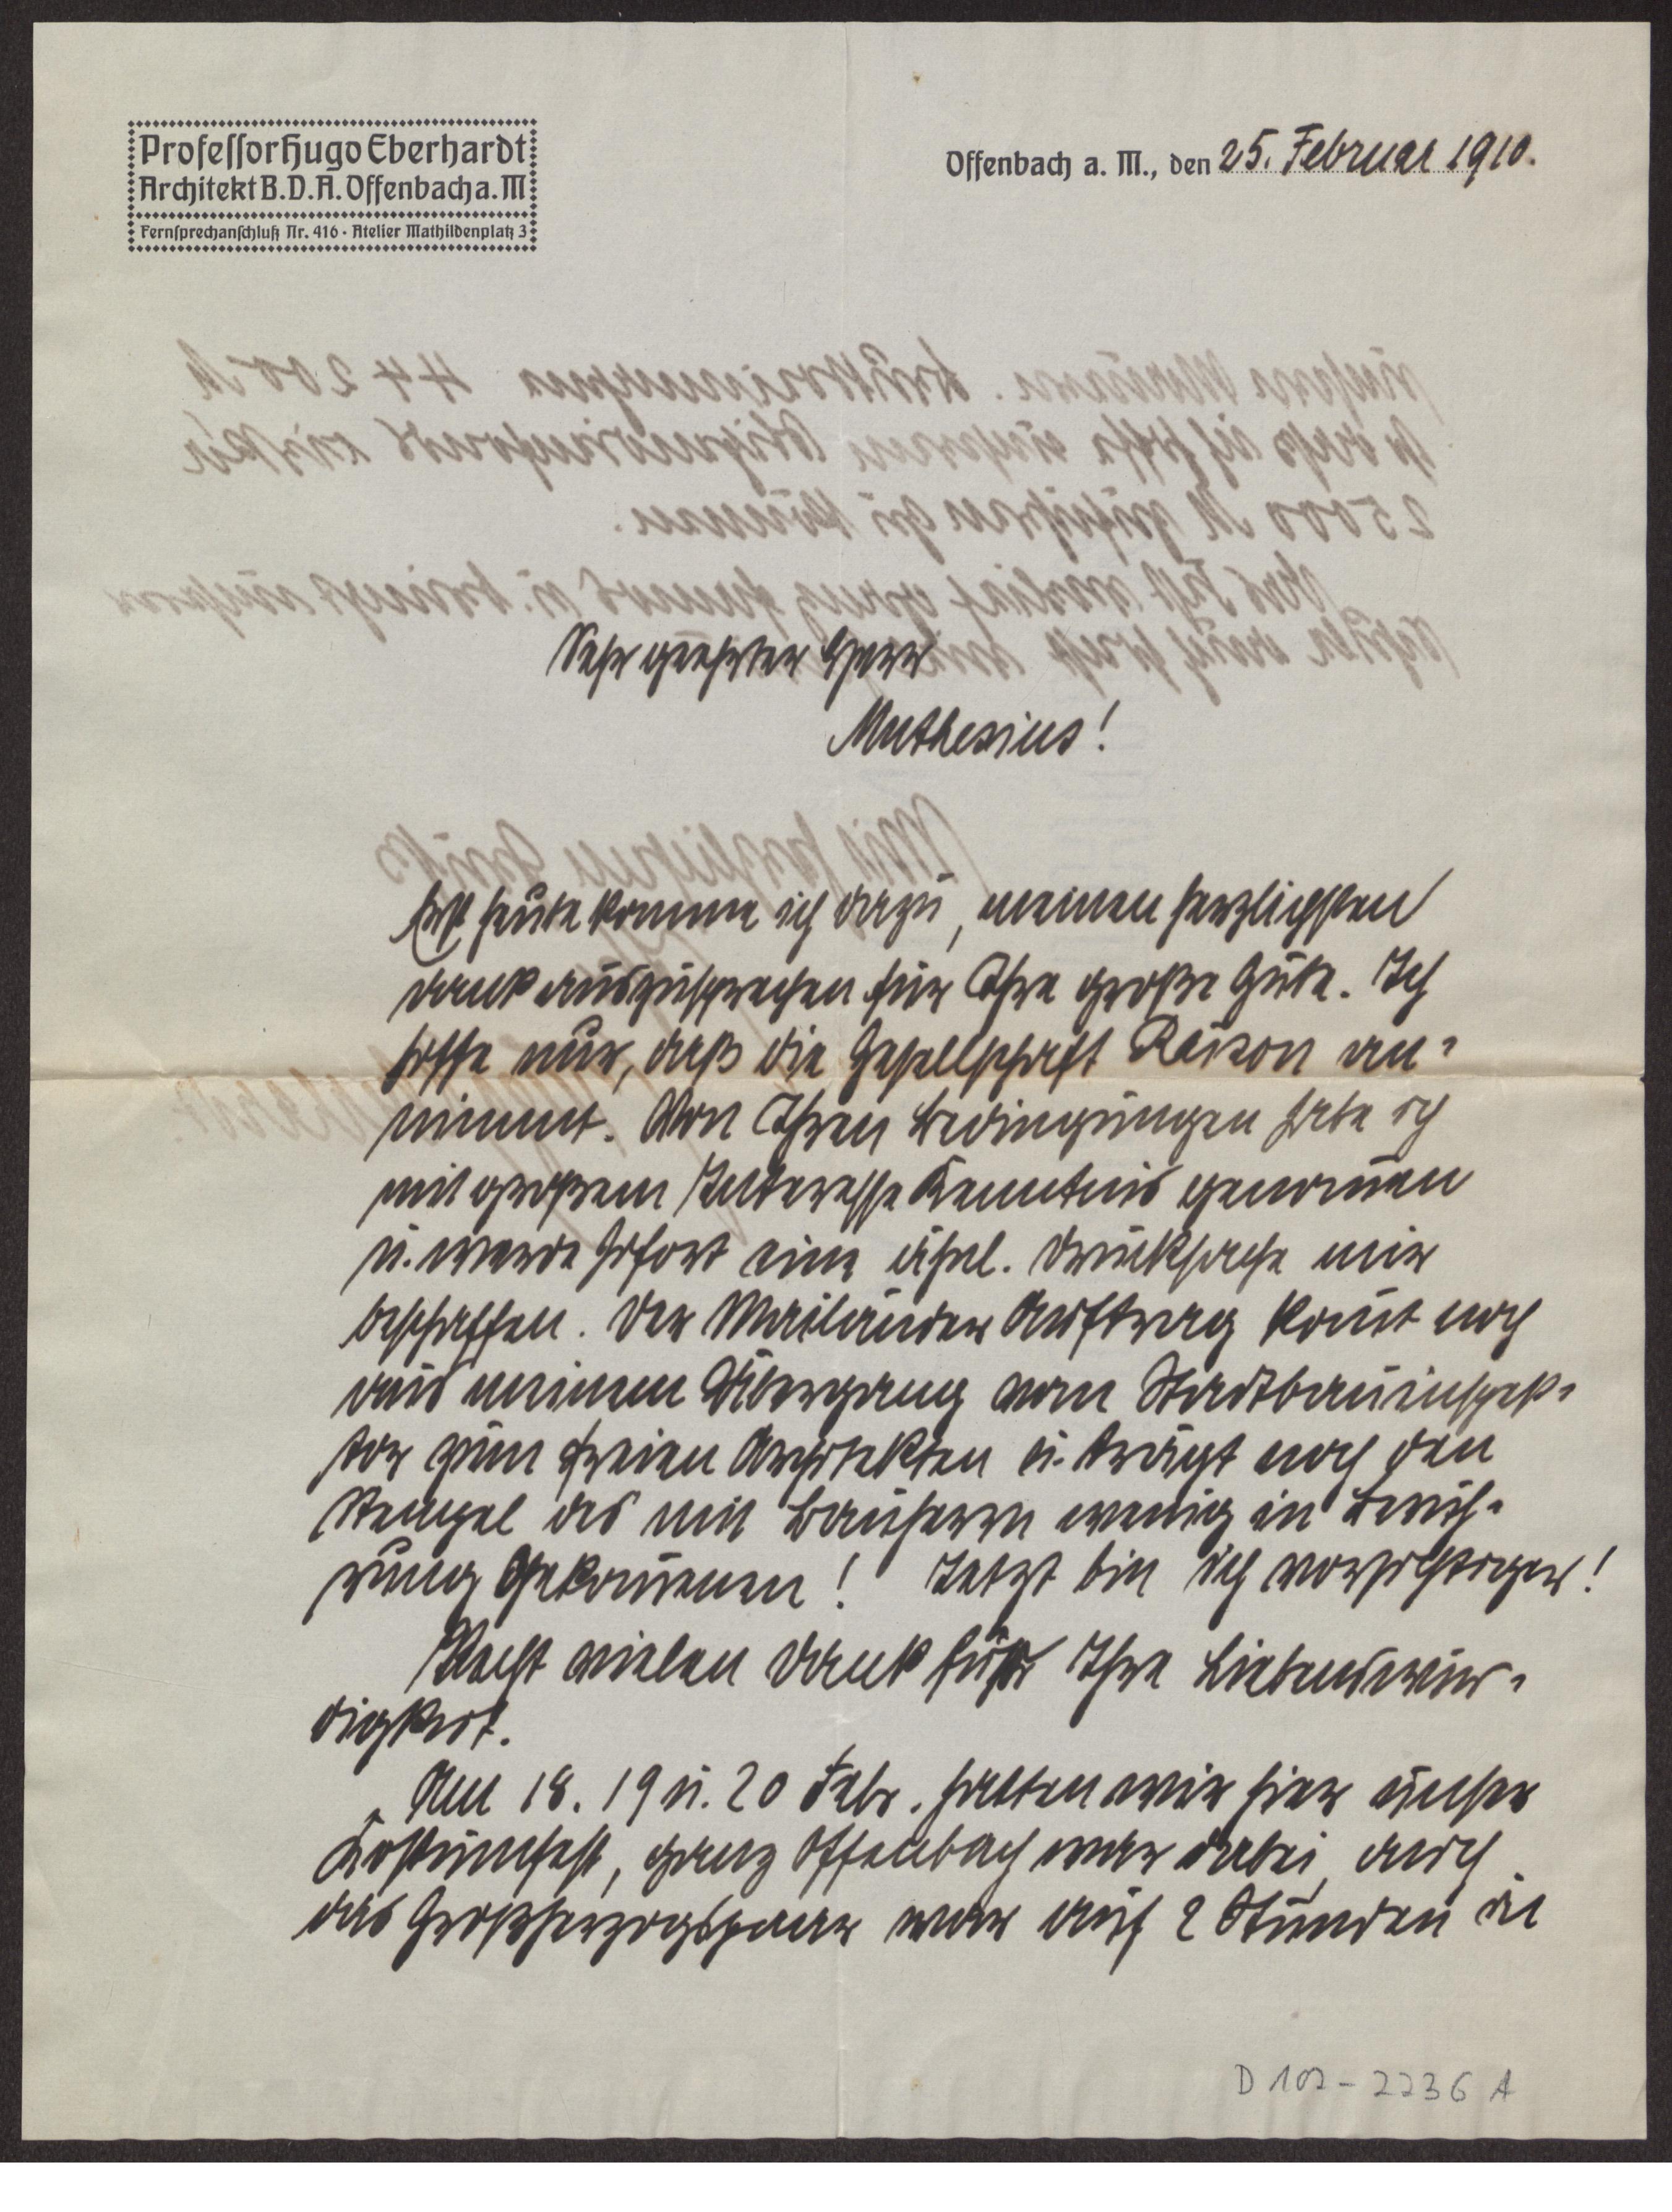 Professor Hugo Eberhardt
Architekt B.D.A. Offenbach a. M
Fernsprechanschluß Nr. 416 · Atelier Mathildenplatz 3
Offenbach a. M., den 25. Februar 1910.
Sehr geehrter Herr
Muthesius!
Erst heute komme ich dazu, meinen herzlichsten
Dank auszusprechen für Ihre große Güte. Ich
hoffe nur, daß die Gesellschaft Räson an-
nimmt. Von Ihren Bedingungen habe ich
mit großem Interesse Kenntnis genom̅en
u. werde sofort eine ähnl. Drucksache mir
beschaffen. Der Mailänder Auftrag kom̅t noch
aus meinem Übergang vom Stadtbauinspek-
tor zum freien Architekten u. trägt noch den
Stempel des mit Bauherrn wenig in Berüh-
rung Gekom̅enen! Jetzt bin ich vorsichtiger!
Recht vielen Dank für Ihre Liebenswür-
digkeit.
Am 18. 19 u. 20 Febr. hatten wir hier unser
Kostümfest, ganz Offenbach war dabei, auch
das Großherzogspaar war auf 2 Stunden in
D 102-2236 A